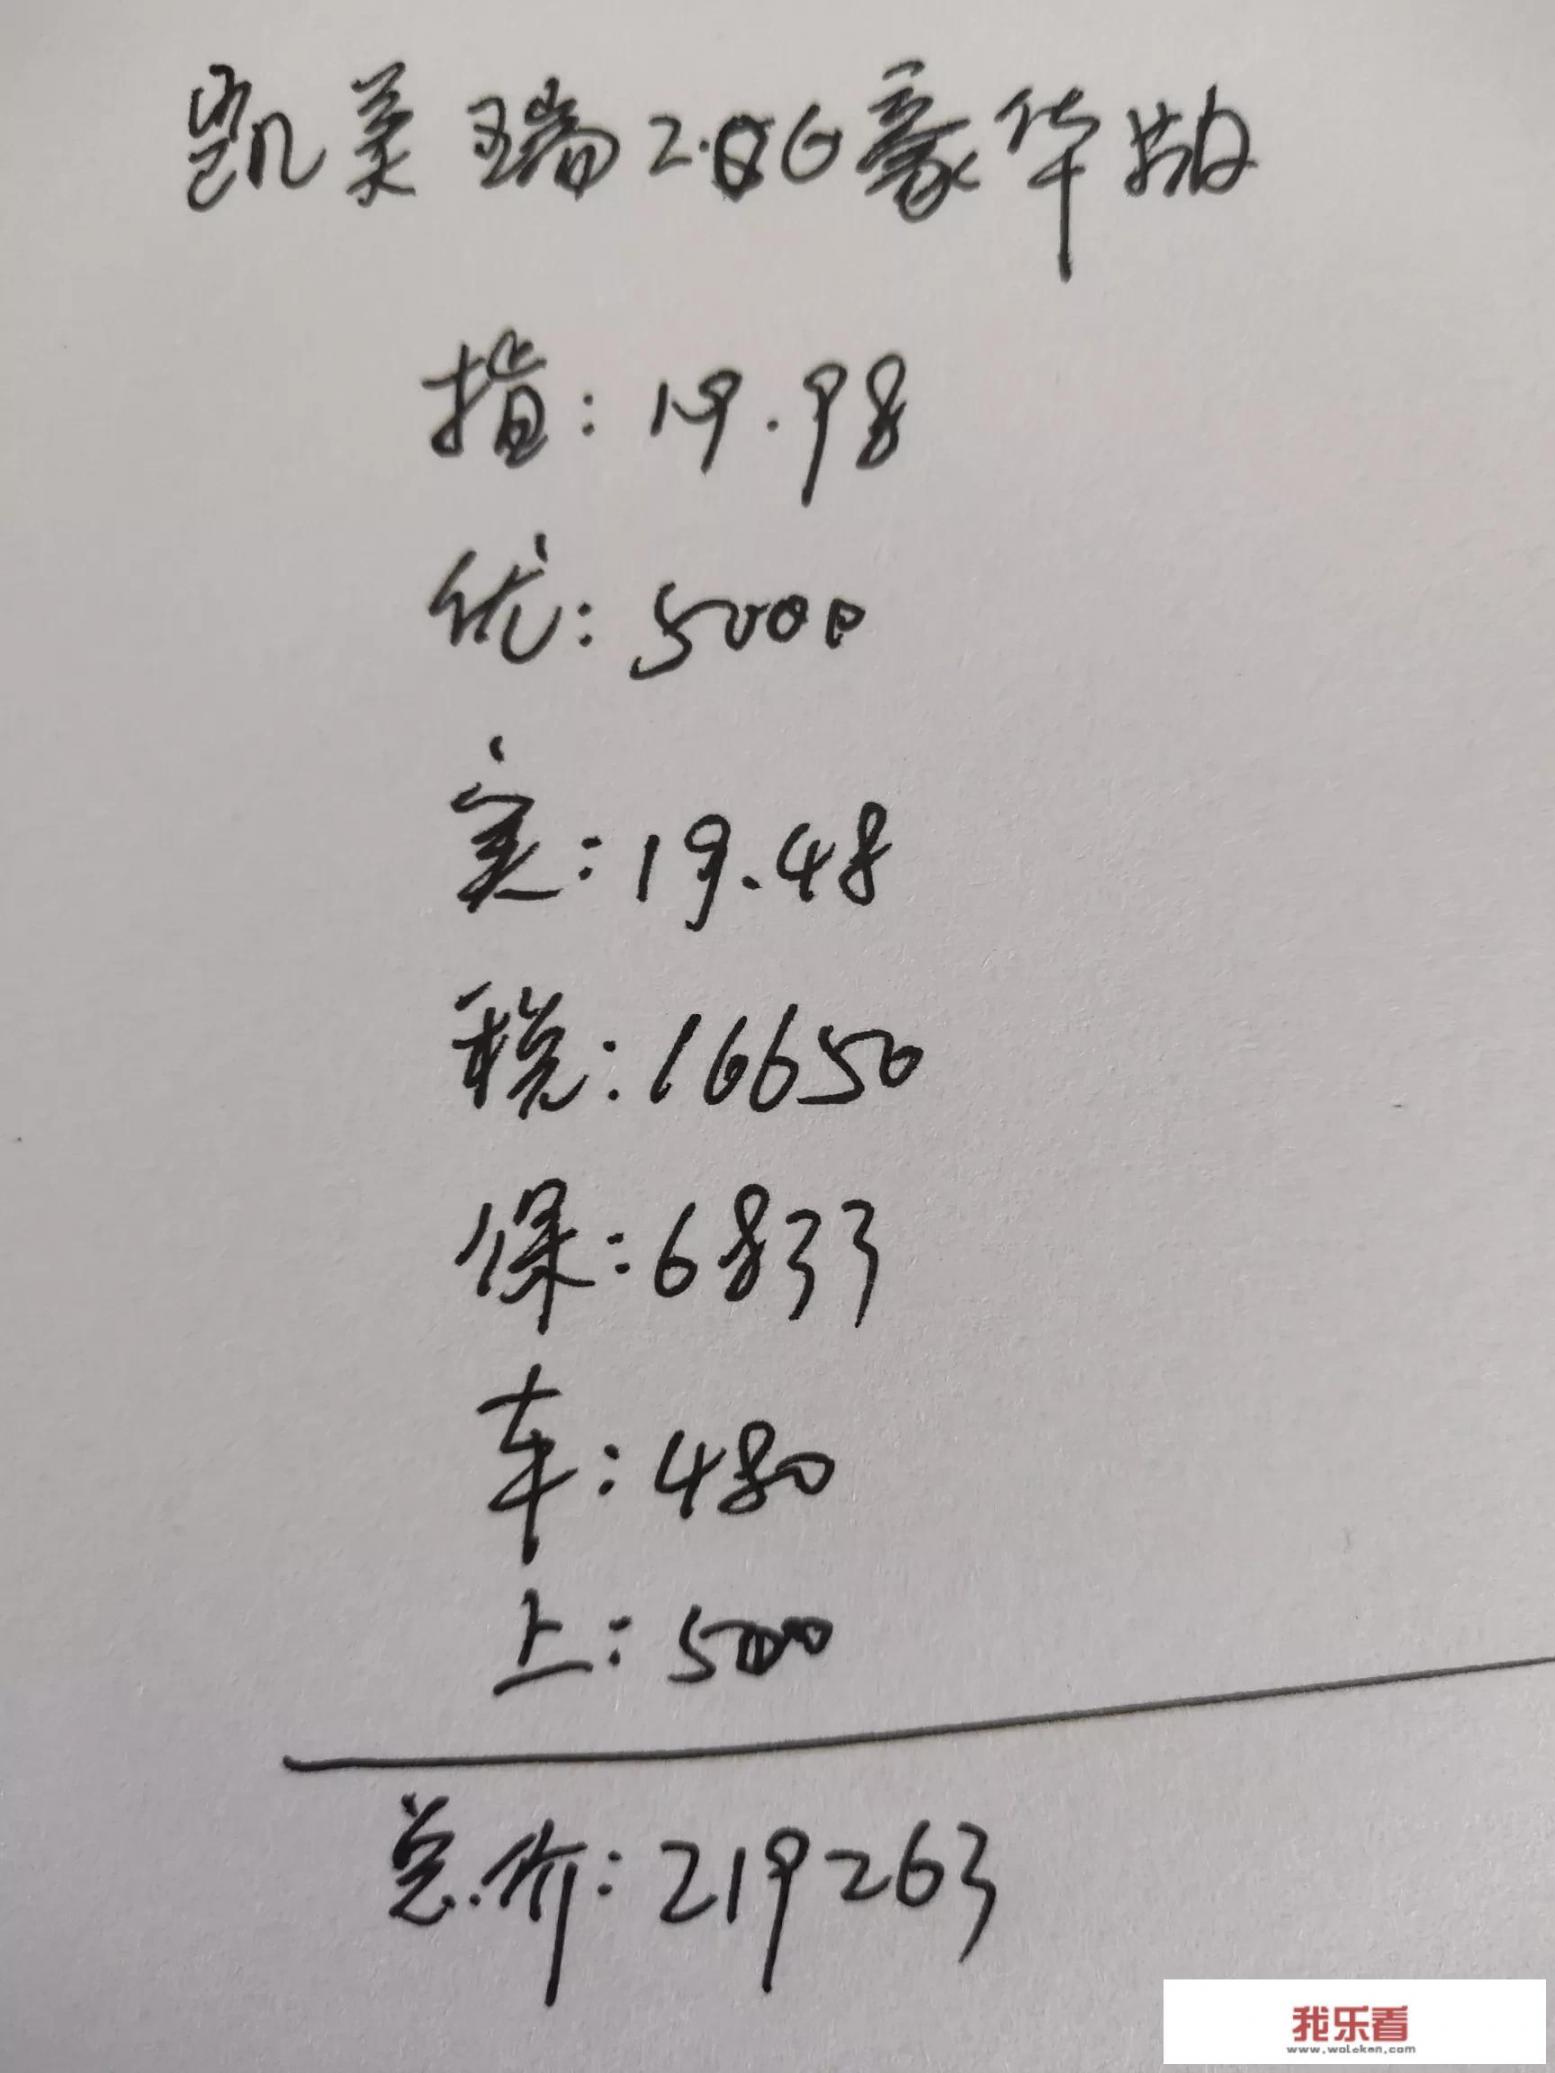 凯美瑞2.0G豪华版
指:19.98
优:5000
实:19.48
税:16650
保:6833
车:480
上:500
总价:219263
我乐看
www.woleken.com